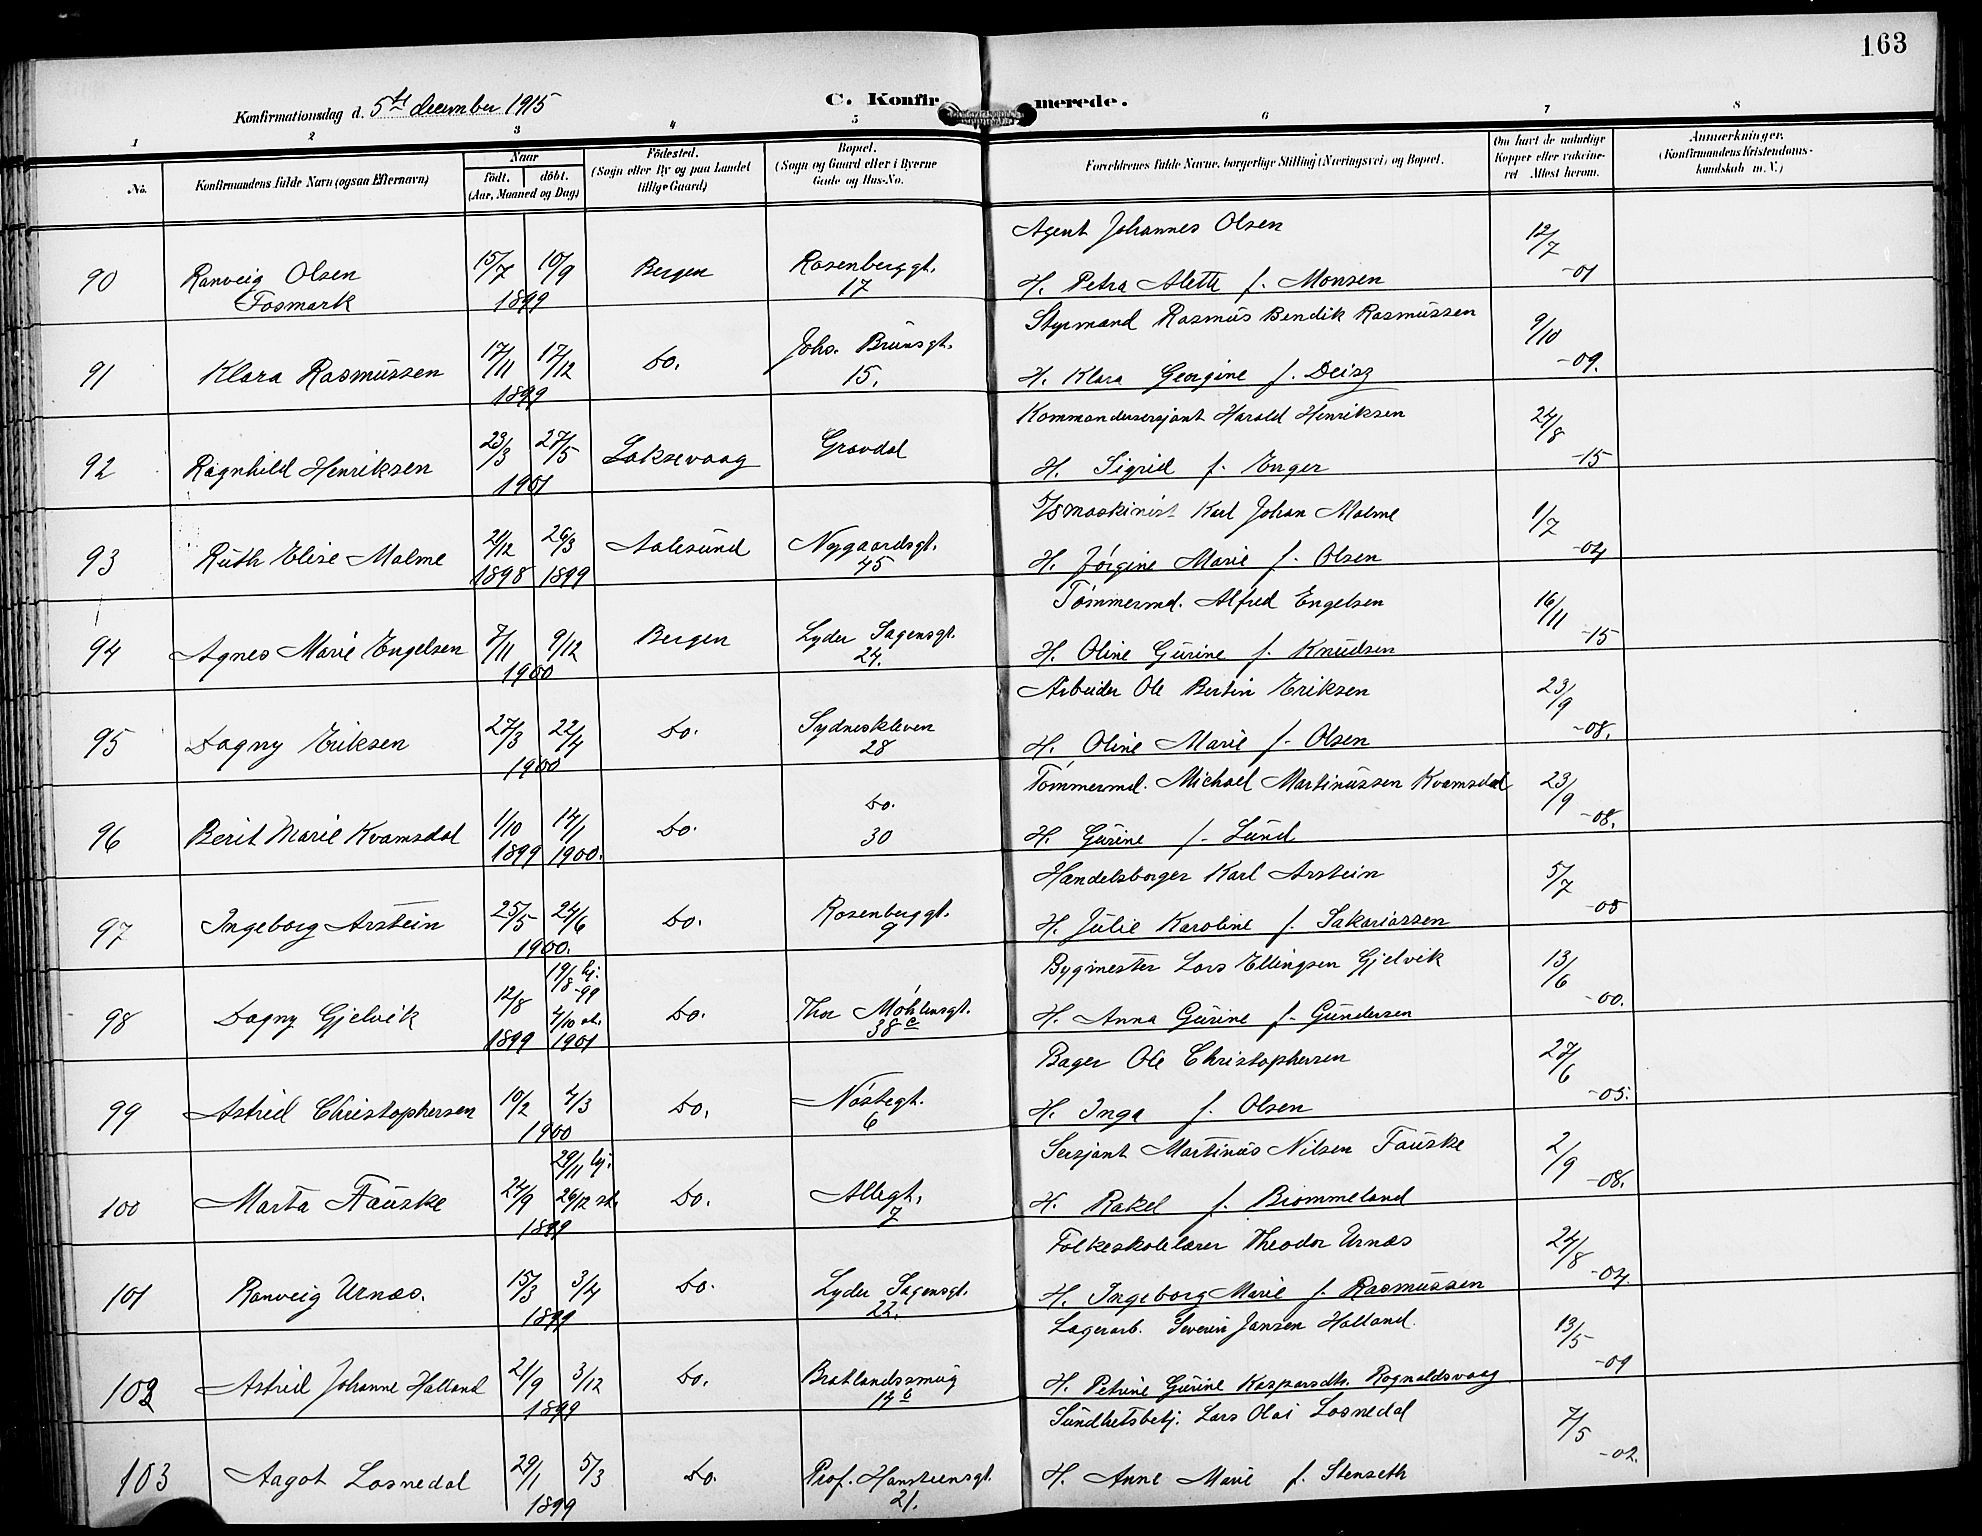 163
Konfirmationsdag d. 5te december 1915
C. Konfirmerede.
1 2 3 4 5 6 7 8
No.
Konfirmandens fulde Navn (ogsaa Efternavn)
Naar
født. døbt.
(Aar, Maaned og Dag)
Fødested.
(Sogn eller By og paa Landet
tillige Gaard)
Bopæl.
(Sogn og Gaard eller i Byerne
Gade og Hus-No.
Forældrenes fulde Navne, borgerlige Stilling (Næringsvei) og Bopæl.
Om havt de naturlige
Kopper eller vaksine-
ret Attest herom.
Anmærkninger.
(Konfirmandens Kristendoms-
kundskab m. V.)
Agent Johannes Olsen
90 Ranveig Olsen 15/7 10/9 Bergen Rosenberggt. 12/7
Fosmark 1899 17 H. Petra Alette f. Monsen -01
Styrmand Rasmus Bendik Rasmussen
91 Klara Rasmussen 17/11 17/12 Do. Johs. Brunsgt. 9/10
1899 15. H. Klara Georgine f. Deisz -09.
Kommandersersjant Harald Henriksen
92 Ragnhild Henriksen 23/3 27/5 Laksevaag Gravdal 24/8
1901 H. Sigrid f. Enger -15
D/Smaskinist Karl Johan Malme
93 Ruth Elise Malme 21/12 26/3 Aalesund Nygaardsgt. 1/7
1898 1899 45 H. Jørgine Marie f. Olsen -04
Tømmermd. Alfred Engelsen
94 Agnes Marie Engelsen 7/11 9/12 Bergen Lyder Sagensgt. 16/11
1900 24. H. Oline Gurine f. Knudsen -15
Arbeider Ole Bertin Eriksen
95 Dagny Eriksen 27/3 22/4 Do. Sydneskleven 23/9
1900 28 H. Oline Marie f. Olsen -08.
Tømmermd. Michael Martinussen Kvamsdal
96 Berit Marie Kvamsdal 1/10 14/1 Do. Do. 23/9
1899 1900. 30 H. Gurine f. Lund -08.
Handelsborger Karl Arstein
97 Ingeborg Arstein 25/5 24/6 Do. Rosenberggt. 5/7
1900. 9 H. Julie Karoline f. Sakariassen -08
Bygmester Lars Ellingsen Gjelvik
19/8 hj. -99
98 Dagny Gjelvik 12/8 4/10 st. Do. Thor Møhlensgt. 13/6
1899 1901 38c H. Anna Gurine f. Gundersen -00.
Bager Ole Christophersen
99 Astrid Christophersen 10/2 4/3 Do. Nøstegt. 27/6
1900 6 H. Inga f. Olsen -05.
Sersjant Martinus Nilsen Fauske
29/11 hj.
100 Marta Fauske 24/9 26/12 st. Do. Allegt. 2/9
1899 7 H. Rakel f. Brommeland -08.
Folkeskolelærer Theodor Urnæs
101 Ranveig Urnæs. 15/3 3/4 Do. Lyder Sagensgt. 24/8
1899 22. H. Ingeborg Marie f. Rasmussen -04.
Lagerarb. Severin Jansen Halland.
102 Astrid Johanne Halland 21/9 3/12 Do. Bratlandssmug 13/5
1899 14b H. Petrine Gurine Kaspersdtr. Rognaldsvaag -09
Sundhetsbetj. Lars Olai Losnedal
103 Aagot Losnedal 29/1 5/3 Do. Prof. Hansteensgt. 7/5
1899 21. H. Anne Marie f. Stenseth -02.